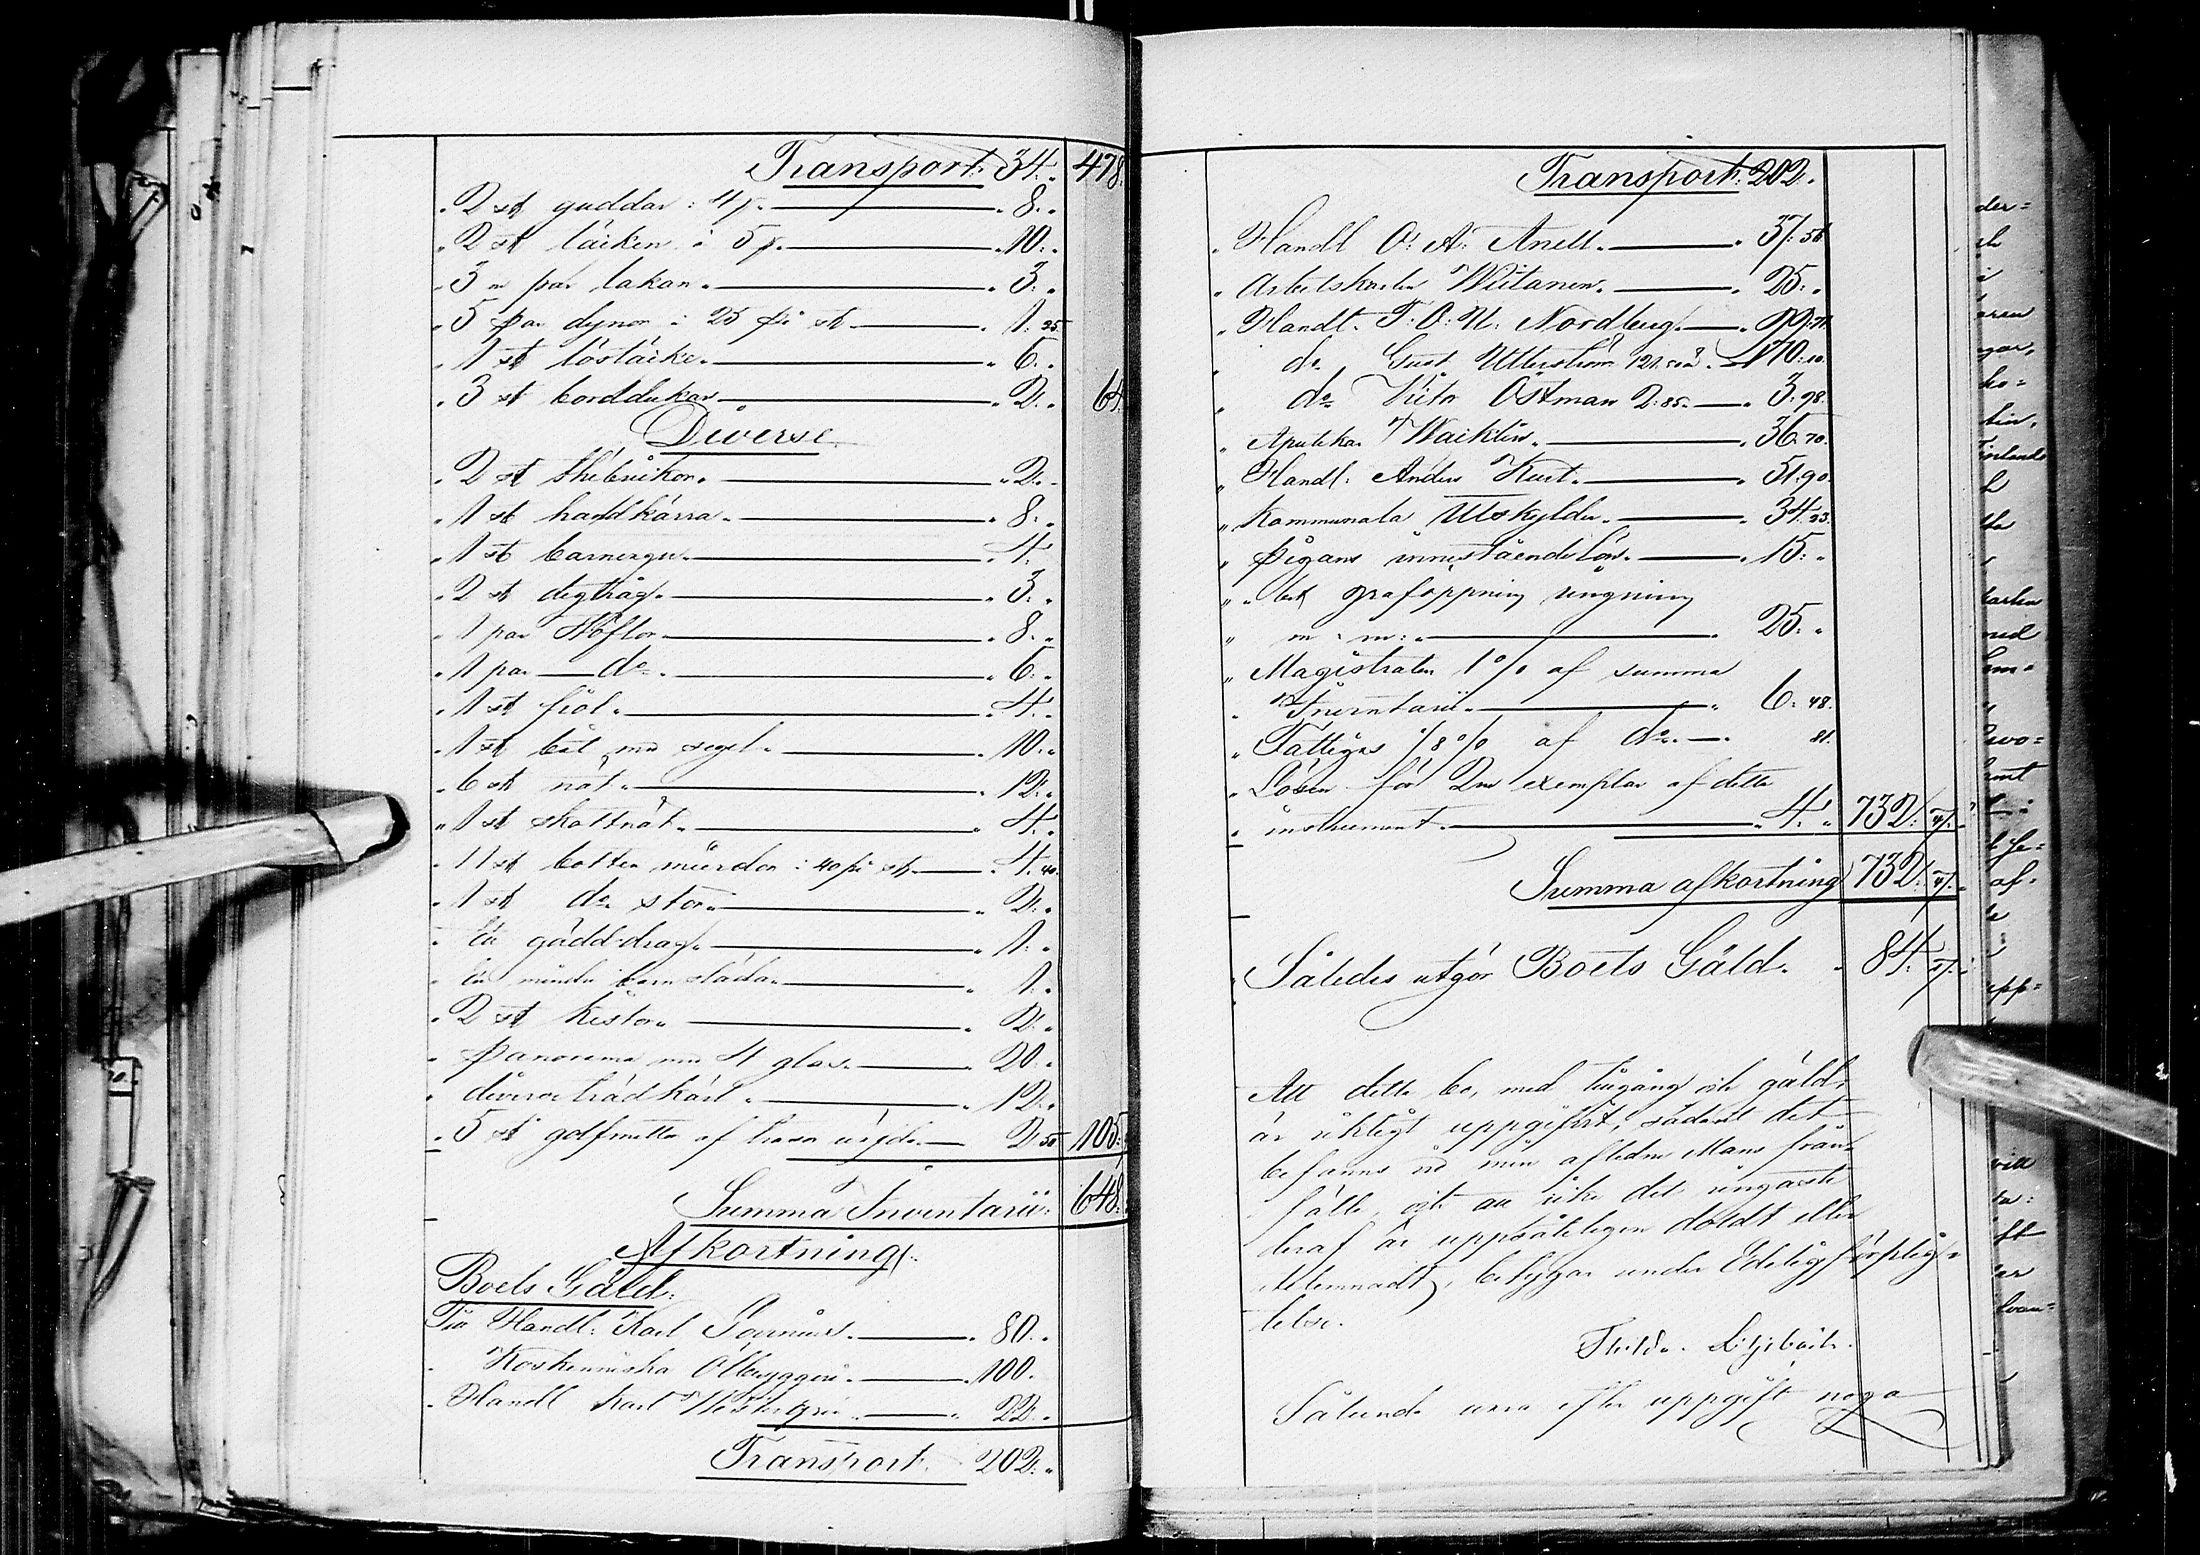 Transport. 34. „ 478.
„ 2 st guddar : 4 p. — „ 8. „
„ 2 st täcken à 5 p. — „ 10. „
„ 3 „ par lakan — „ 3. „
„ 5 par dynor à 25 pi st — „ 1: 25
„ 1 st löstäcke — „ 6. „
„ 3 st borddukar — „ 2. „ 64.
Diverse.
„ 2 st — „ 2. „
„ 1 st handkärra — „ 8. „
„ 1 st barnvagn — „ 4.
„ 2 st degtråg — „ 3. „
„ 1 par Stöflor — „ 8. „
„ 1 par — do — „ 6. „
„ 1 st fiol — „ 4. „
„ 1 st båt med segel — „ 10. „
„ 6 st nät — „ 12. „
„ 1 st skottnät — „ 4. „
„ 11 st botten mjerdor : 40 pi st — „ 4. 40.
„ 1 st do stor — „ 2. „
„ En gädd-drag — „ 1. „
„ En mindre barn släda — „ 1. „
„ 2 st kistor — „ 2. „
„ panorama med 4 glas — „ 20. „
„ diverse trädkärl — „ 12. „
„ 5 st golfmattor af trasor — 2: 50 105.
Summa Inventarii. 648.
Afkortning.
Boets Gäld.
Till Handl: Karl — „ 80. „
„ Koskenniska Ölbryggeri — „ 100.
„ Handl Karl — „ 22. „
Transport. 202. „
Transport. 202. „
„ Handl O: A: Anell. — „ 37: 50
„ Arbetskarlen Wiitanen. — „ 25. „
„ Handl. F: O: U: Nordberg. — „ 99: 71.
„ do Gust Utterström — 170: 10.
„ do Viktor Östman 2: 85. — „ 3. 98.
„ Apotekar — „ 36. 70.
„ Handl: Anders Kurt. — „ 51. 90.
„ Kommunala Utskylder. — „ 34. 23.
„ pigans innestående lön. — „ 15: „
„ „ bet grafoppning ringning
„ m : m: „ — „ 25. „
„ Magistraten 1 % af summa
„ Inventarii — „ 6. 48.
„ Fattigas 1/8 % af do. — 81.
„ Lösen för 2ne exemplar af detta
„ instrument. — „ 4. „ 732. 41.
Summa afkortning 732. 41.
Således utgör Boets Gäld. „ 84.
Att detta bo, med tillgång och gäld,
är riktigt uppgifvit, sådant det
befanns vid min aflidne Mans från-
fälle, och att icke det ringaste
deraf är uppsåtligen doldt eller
utelemnadt, betygar under Edelig förplig-
telse.
Hilda
Sålunda vara efter uppgift noga